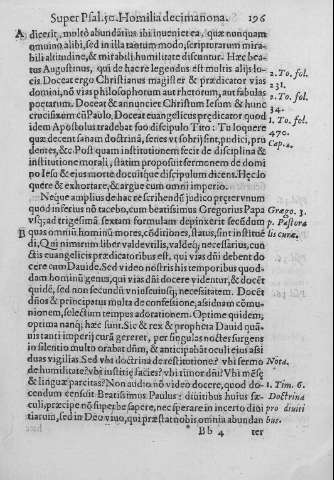 Super Psal. 50. Homilia decimanona. 196
A dicerit, multo abundãtius ibi inueniet ea, quæ nunquam
omnino alibi, sed in illa tantum modo, scripturarum mira-
bili altitudine, & mirabili humilitate discuntur. Hæc bea-
tus Augustinus, qui de hac re legendus est multis alijs lo-
cis. Doceat ergo Christianus magister & prædicator vias 2. To. fol.
domini, nõ vias philosophorum aut rhetorum, aut fabulas 231.
poetarum. Doceat & annunciet Christum Iesum, & hunc 2. To. fol.
crucifixum cũ Paulo. Doceat euangelicus prædicator quod 34.
idem Apostolus tradebat suo discipulo Tito: Tu loquere 1. To. fol.
quæ decent sanam doctrinã, senes vt sobrij sint, pudici, pru 470.
dentes, &c. Post quam institutionem fecit de disciplina & Cap. 2.
institutione morali, statim proposuit sermonem de domi
no Iesu & eius morte docuitque discipulum dicent. Hęc lo
quere & exhortare, & argue cum omni imperio.
Neque amplius de hac re scribendũ iudico præter vnum
quod inferius nõ tacebo, cum beatissimus Gregorius Papa Grego. 3.
vsq; ad trigesimã sextam formulam depinxerit secũdum p. Pastora
B quas omniũ hominũ mores, cõditiones, status, sint instituē lis curæ.
di, Qui nimirum liber valde vtilis, valdeq; necessarius, cun
ctis euangelicis prædicatoribus est, qui vias dñi debent do
cere cum Dauide. Sed video nostris his temporibus quod-
dam hominũ genus, qui vias dñi docere videntur, & docēt
quidē, sed non secundũ vniuscuiusq; necessitatem. Docent
dños & principatus multa de confessione, assiduam cõmu-
nionem, selectum tempus adorationem. Optime quidem,
optima nanq; hæc sunt. Sic & rex & propheta Dauid quã-
uis tanti imperij curã gereret, per singulas noctes surgens
in silentio multo orabat dñm, & anticipabãt oculi eius assi
duas vigilias. Sed vbi doctrina de restitutione? vbi sermo Nota.
de humilitate? vbi iustitię facies? vbi timor dñi? Vbi mēsę
& linguæ parcitas? Non audio nõ video docere, quod do- 1. Tim. 6.
cendum censuit Beatissimus Paulus: diuitibus huius sæ- Doctrina
culi præcipe nõ superbe sapere, nec sperare in incerto diui pro diuiti
tiarum, sed in Deo viuo, qui præstat nobis omnia abundan bus.
Bb 4 ter